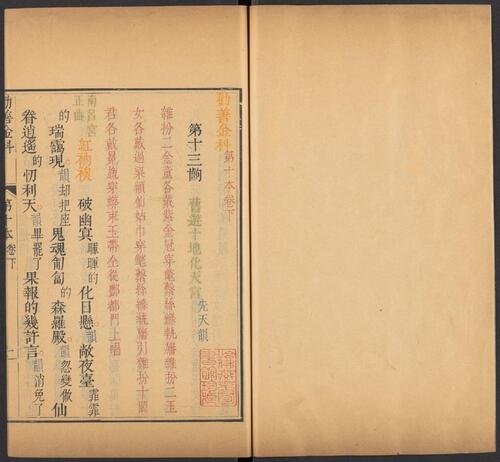 勸善金科 第十本卷下
第十三齣 舊遊十地化天宮 先天韻
雜扮二金童各戴紫金冠穿氅繫絲縧執旛雜扮二玉
女各戴過梁額仙姑巾穿氅繫絲縧執旛引雜扮十閻
君各戴冕旒穿蟒束玉帶仝從酆都門上唱
南呂宮正曲 紅衲襖 破幽冥暉暉的化日懸韻敞夜臺霏霏
的瑞靄現韻却把座鬼魂匍匐的森羅殿韻忽變做仙
眷逍遙的忉利天韻畢罷了果報的幾許言韻消免了
勸善金科 第十本卷下 一